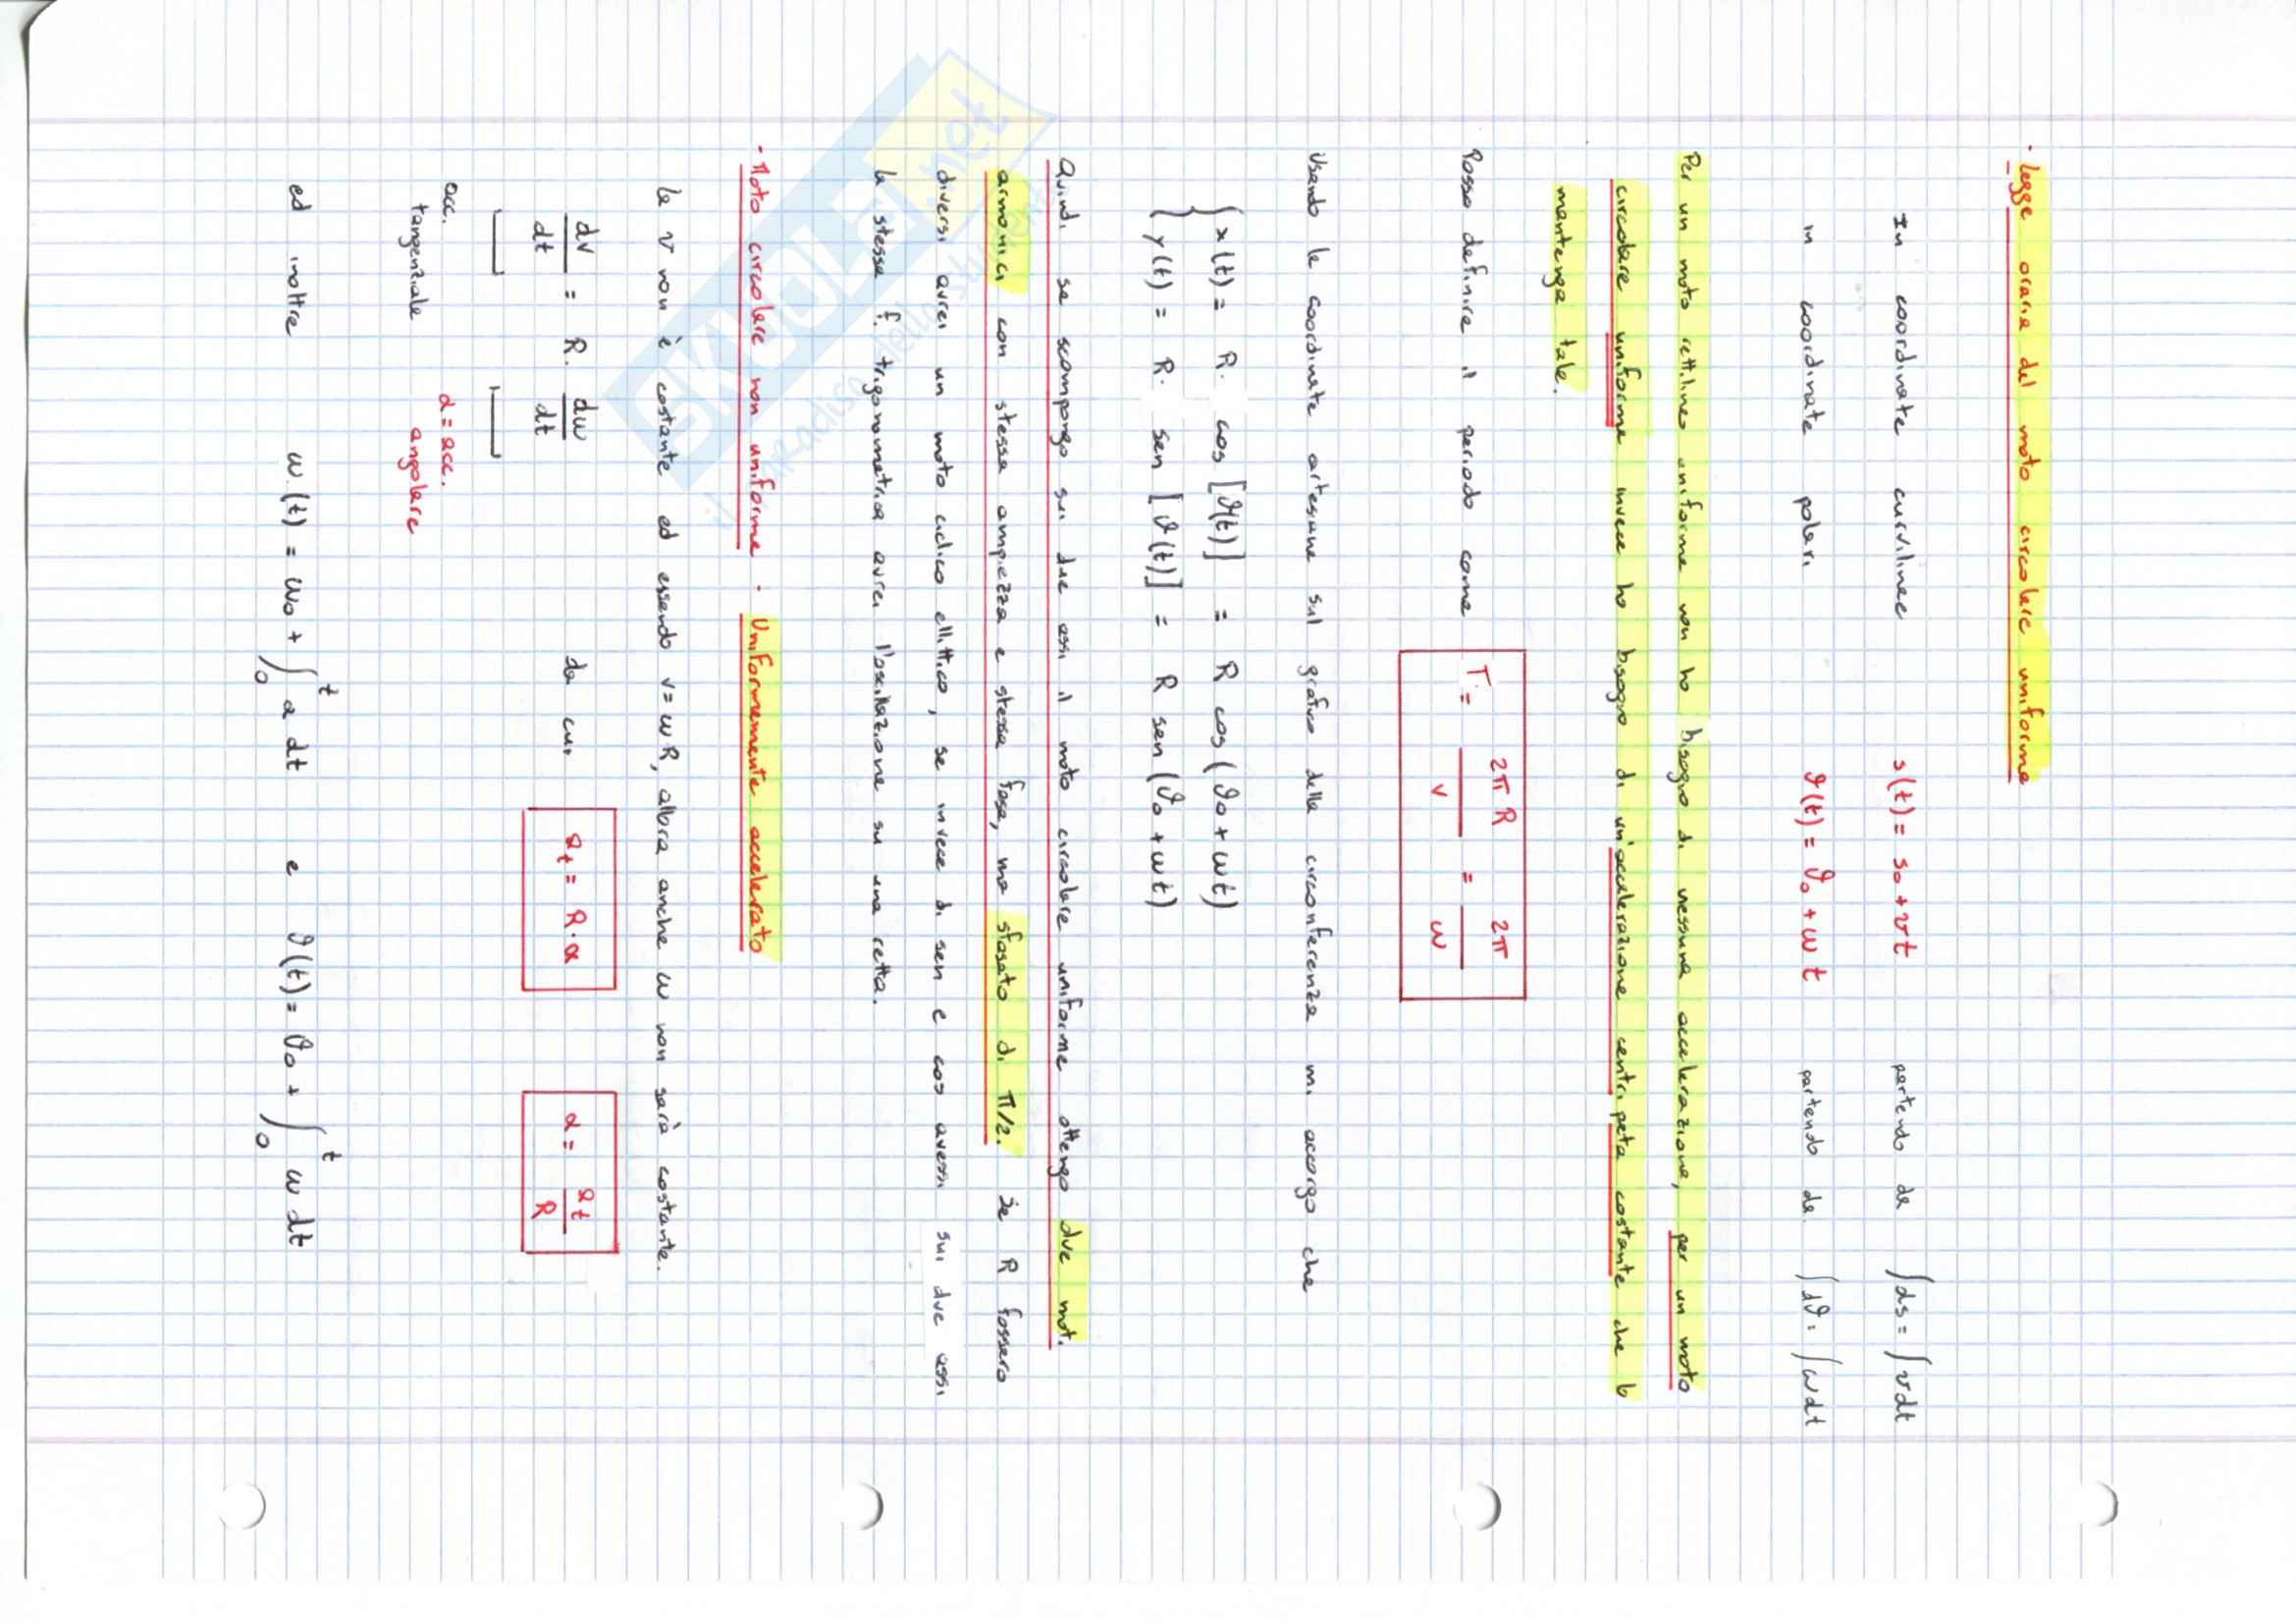 · Legge oraria del moto circolare uniforme
In coordinate curvilinee s(t) = s₀ + vt partendo da ∫ds = ∫vdt
in coordinate polari ϑ(t) = ϑ₀ + ωt partendo da ∫dϑ = ∫ωdt
Per un moto rettilineo uniforme non ho bisogno di nessuna accelerazione, per un moto
circolare uniforme invece ho bisogno di un'accelerazione centripeta costante che lo
mantenga tale.
Posso definire il periodo come T = 2πR/v = 2π/ω
Usando le coordinate cartesiane sul grafico della circonferenza mi accorgo che
{ x(t) = R · cos [ϑ(t)] = R cos (ϑ₀ + ωt)
{ y(t) = R · sen [ϑ(t)] = R sen (ϑ₀ + ωt)
Quindi se scompongo sui due assi il moto circolare uniforme ottengo due moti
armonici con stessa ampiezza e stessa fase, ma sfasato di π/2. Se R fossero
diversi avrei un moto ciclico ellittico, se invece di sen e cos avessi sui due assi
la stessa f. trigonometrica avrei l'oscillazione su una retta.
· Moto circolare non uniforme · Uniformemente accelerato
la v non è costante ed essendo v = ωR, allora anche ω non sarà costante.
dv/dt = R · dω/dt da cui a_t = R · α α = a_t/R
acc. tangenziale α = acc. angolare
ed inoltre ω(t) = ω₀ + ∫₀ᵗ a dt e ϑ(t) = ϑ₀ + ∫₀ᵗ ω dt
SKUOLA.net